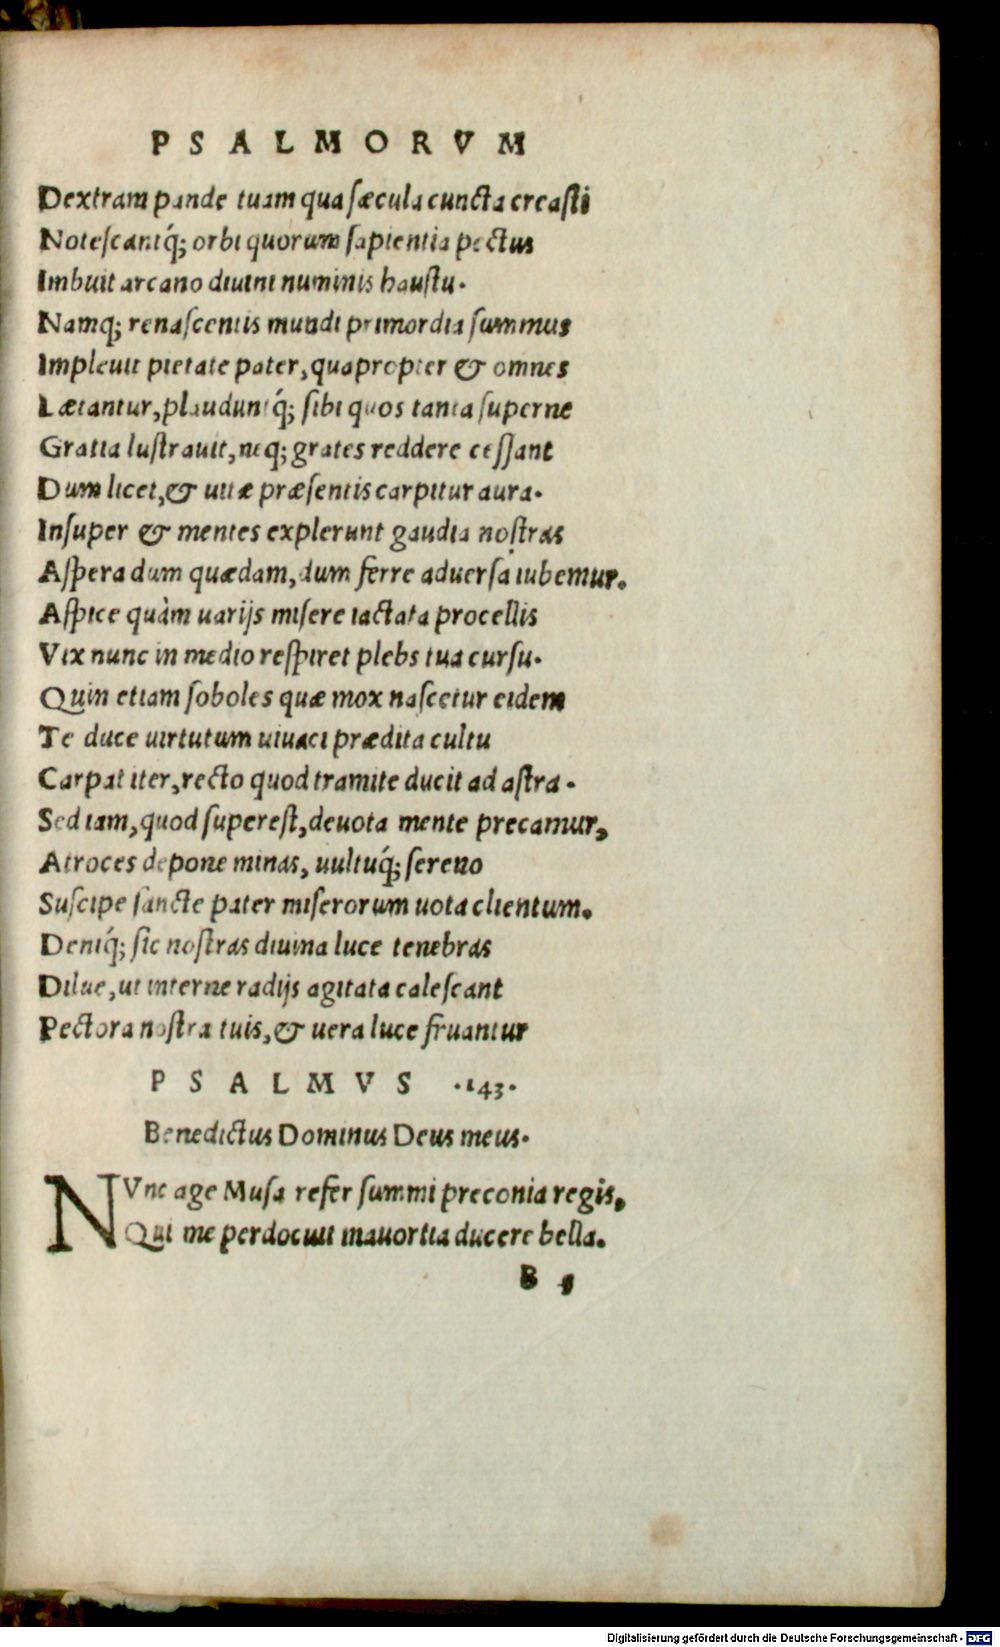 PSALMORVM
Dextram pande tuam qua sæcula cuncta creasti
Notescantq́; orbi quorum sapientia pectus
Imbuit arcano diuini numinis haustu.
Namq; renascentis mundi primordia summus
Impleuit pietate pater, quapropter & omnes
Lætantur, plauduntq́; sibi quos tanta superne
Gratia lustrauit, neq; grates reddere cessant
Dum licet, & uitæ præsentis carpitur aura.
Insuper & mentes explerunt gaudia nostras
Aspera dum quædam, dum ferre aduersa iubemur.
Aspice quàm uarijs misere iactata procellis
Vix nunc in medio respiret plebs tua cursu.
Quin etiam soboles quæ mox nascetur eidem
Te duce uirtutum uiuaci prædita cultu
Carpat iter, recto quod tramite ducit ad astra.
Sed iam, quod superest, deuota mente precamur,
Atroces depone minas, uultuq́; sereno
Suscipe sancte pater miserorum uota clientum.
Deniq́; sic nostras diuina luce tenebras
Dilue, ut interne radijs agitata calescant
Pectora nostra tuis, & uera luce fruantur
PSALMVS .143.
Benedictus Dominus Deus meus.
NVnc age Musa refer summi preconia regis,
Qui me perdocuit mauortia ducere bella.
B 5
Digitalisierung gefördert durch die Deutsche Forschungsgemeinschaft - DFG